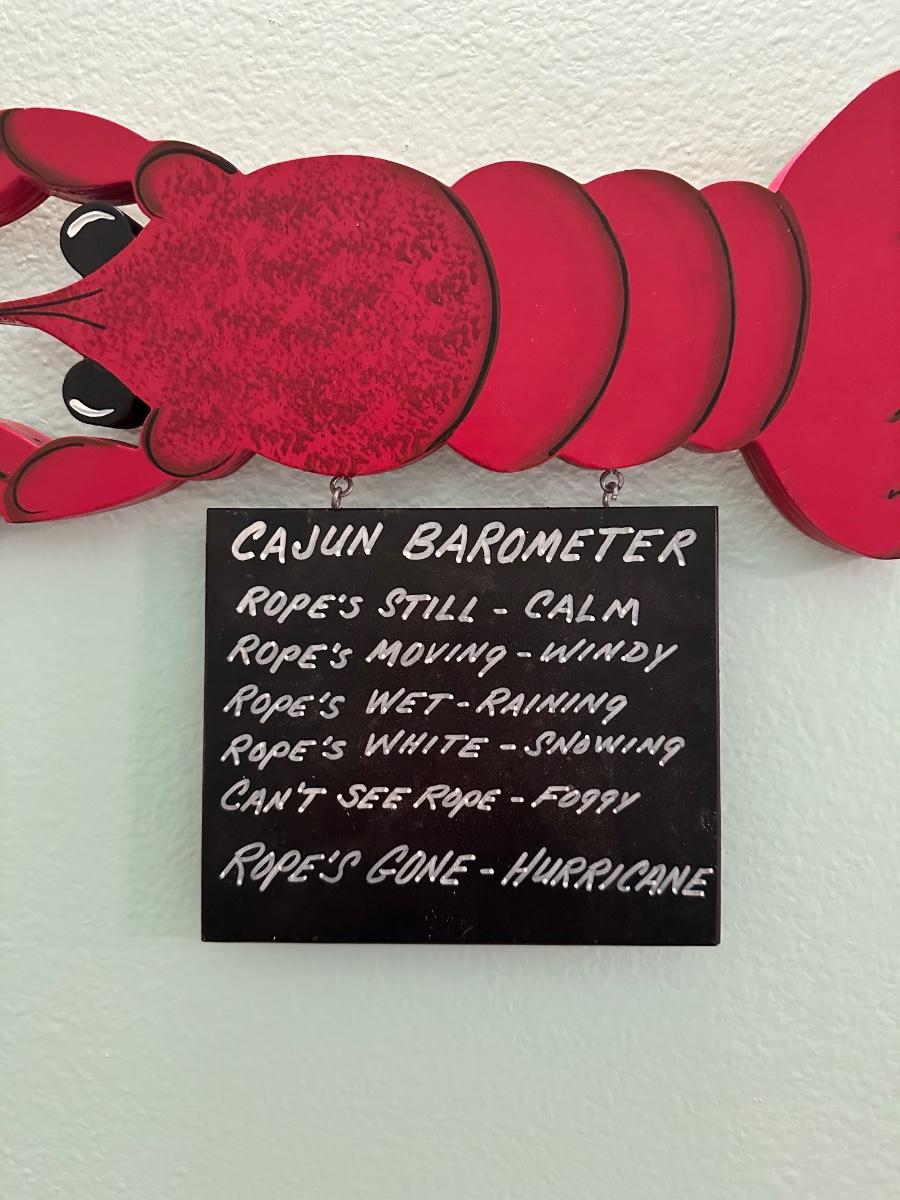 CAJUN BAROMETER
ROPE'S STILL - CALM
ROPE'S MOVING - WINDY
ROPE'S WET - RAINING
ROPE'S WHITE - SNOWING
CAN'T SEE ROPE - FOGGY
ROPE'S GONE - HURRICANE